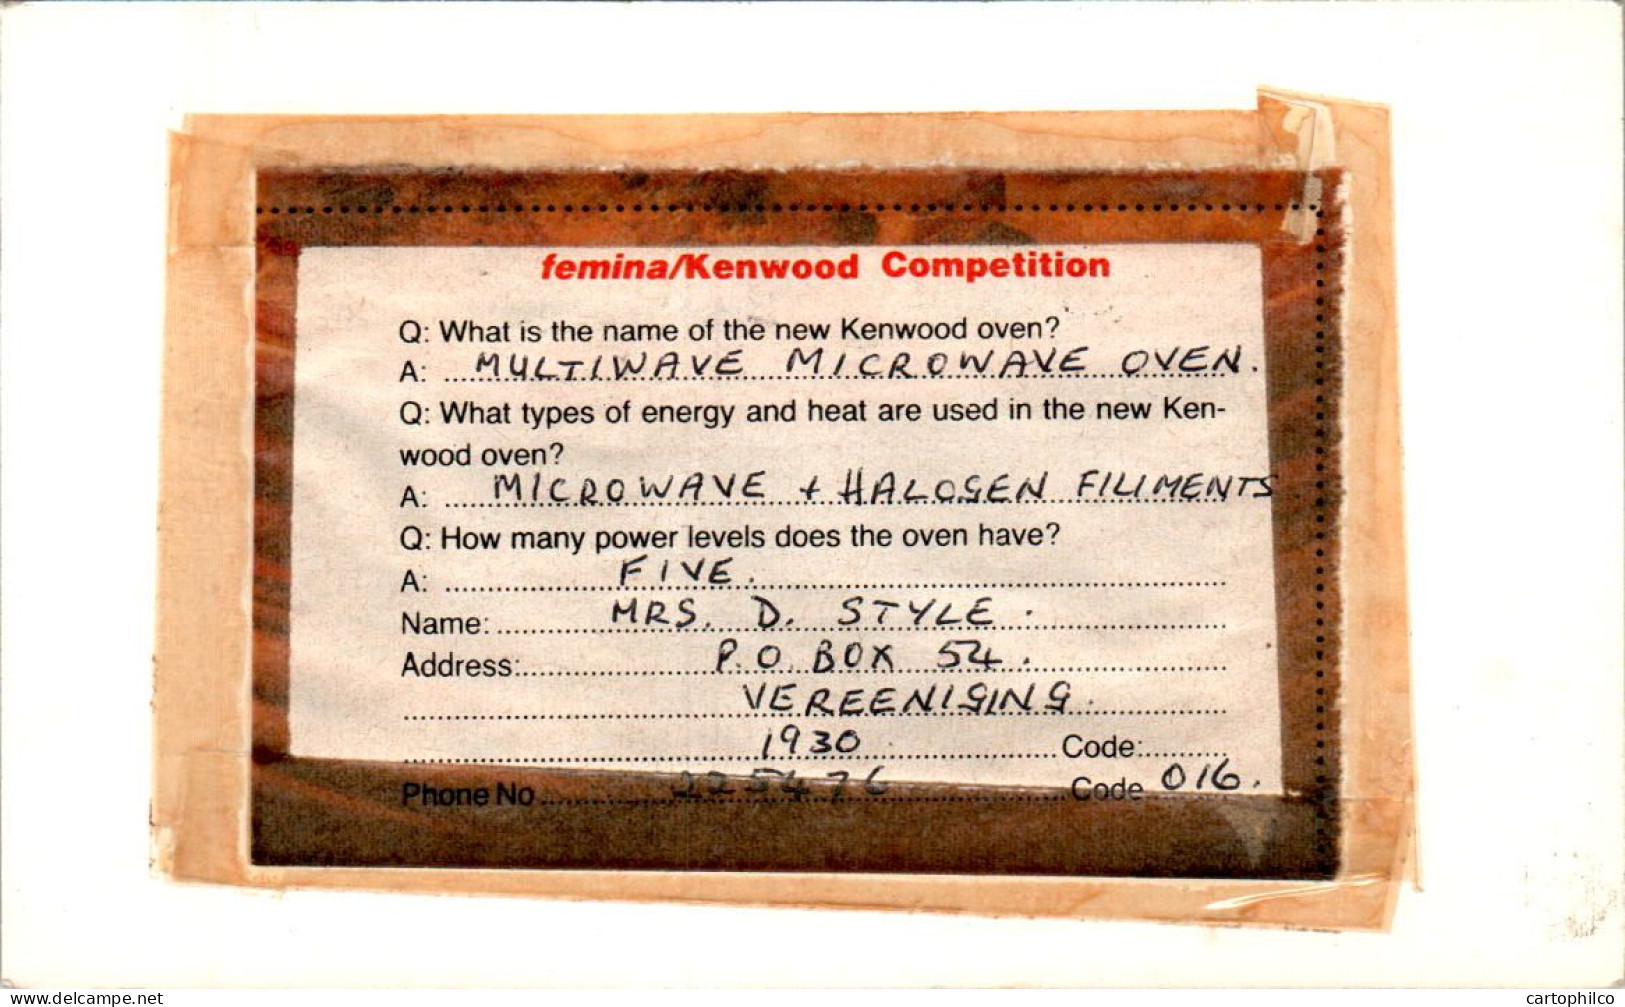 femina/Kenwood Competition
Q: What is the name of the new Kenwood oven?
A: MULTIWAVE MICROWAVE OVEN.
Q: What types of energy and heat are used in the new Ken-
wood oven?
A: MICROWAVE + HALOGEN FILIMENTS
Q: How many power levels does the oven have?
A: FIVE.
Name: MRS. D. STYLE.
Address: P.O. BOX 54.
VEREENIGING.
1930 Code:
Phone No 225476 Code 016.
www.delcampe.net
cartophilco